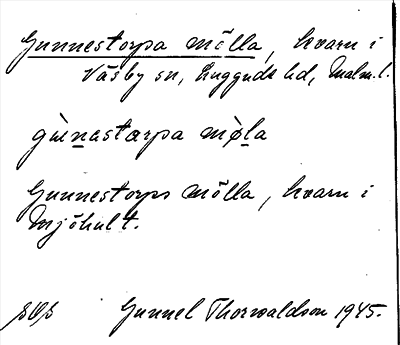 Gunnestorpa mölla, kvarn i
Väsby sn, Luggude hd, Malm.l.
gùnastarpa mø̀la
Gunnestorps mölla, kvarn i
Mjöhult.
Gunnel Thorwaldson 1945.